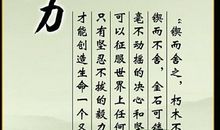 力
:锲而舍之,朽木不
锲而不舍,金石可镂
毫不动摇的决心和坚
可以征服世界上任何
只有坚忍不拔的毅力
才能创造生命一个又